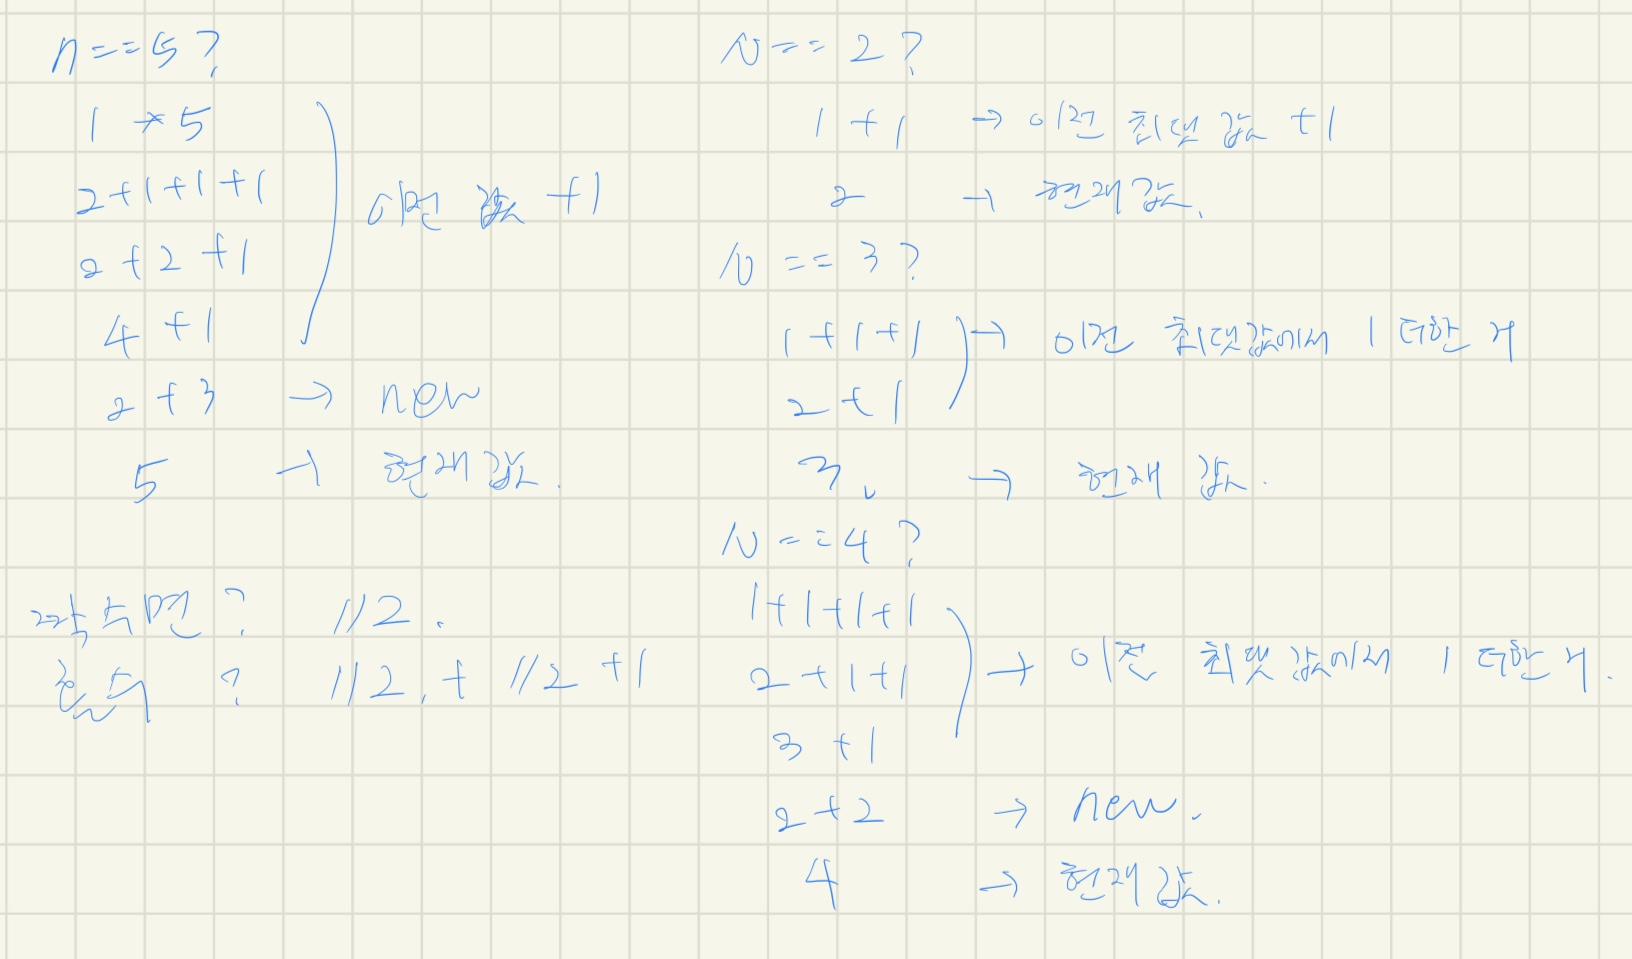 n == 5 ?
1 * 5
2+1+1+1
2+2+1
4+1
이전 값 +1
2+3 → new
5 → 현재값.
짝수면? //2.
홀수? //2, + //2 +1
N == 2 ?
1+1 → 이전 최댓값 +1
2 → 현재값.
N == 3 ?
1+1+1
2+1
→ 이전 최댓값에서 1 더한 거
3. → 현재 값.
N == 4 ?
1+1+1+1
2+1+1
3+1
→ 이전 최댓값에서 1 더한 거.
2+2 → new.
4 → 현재값.